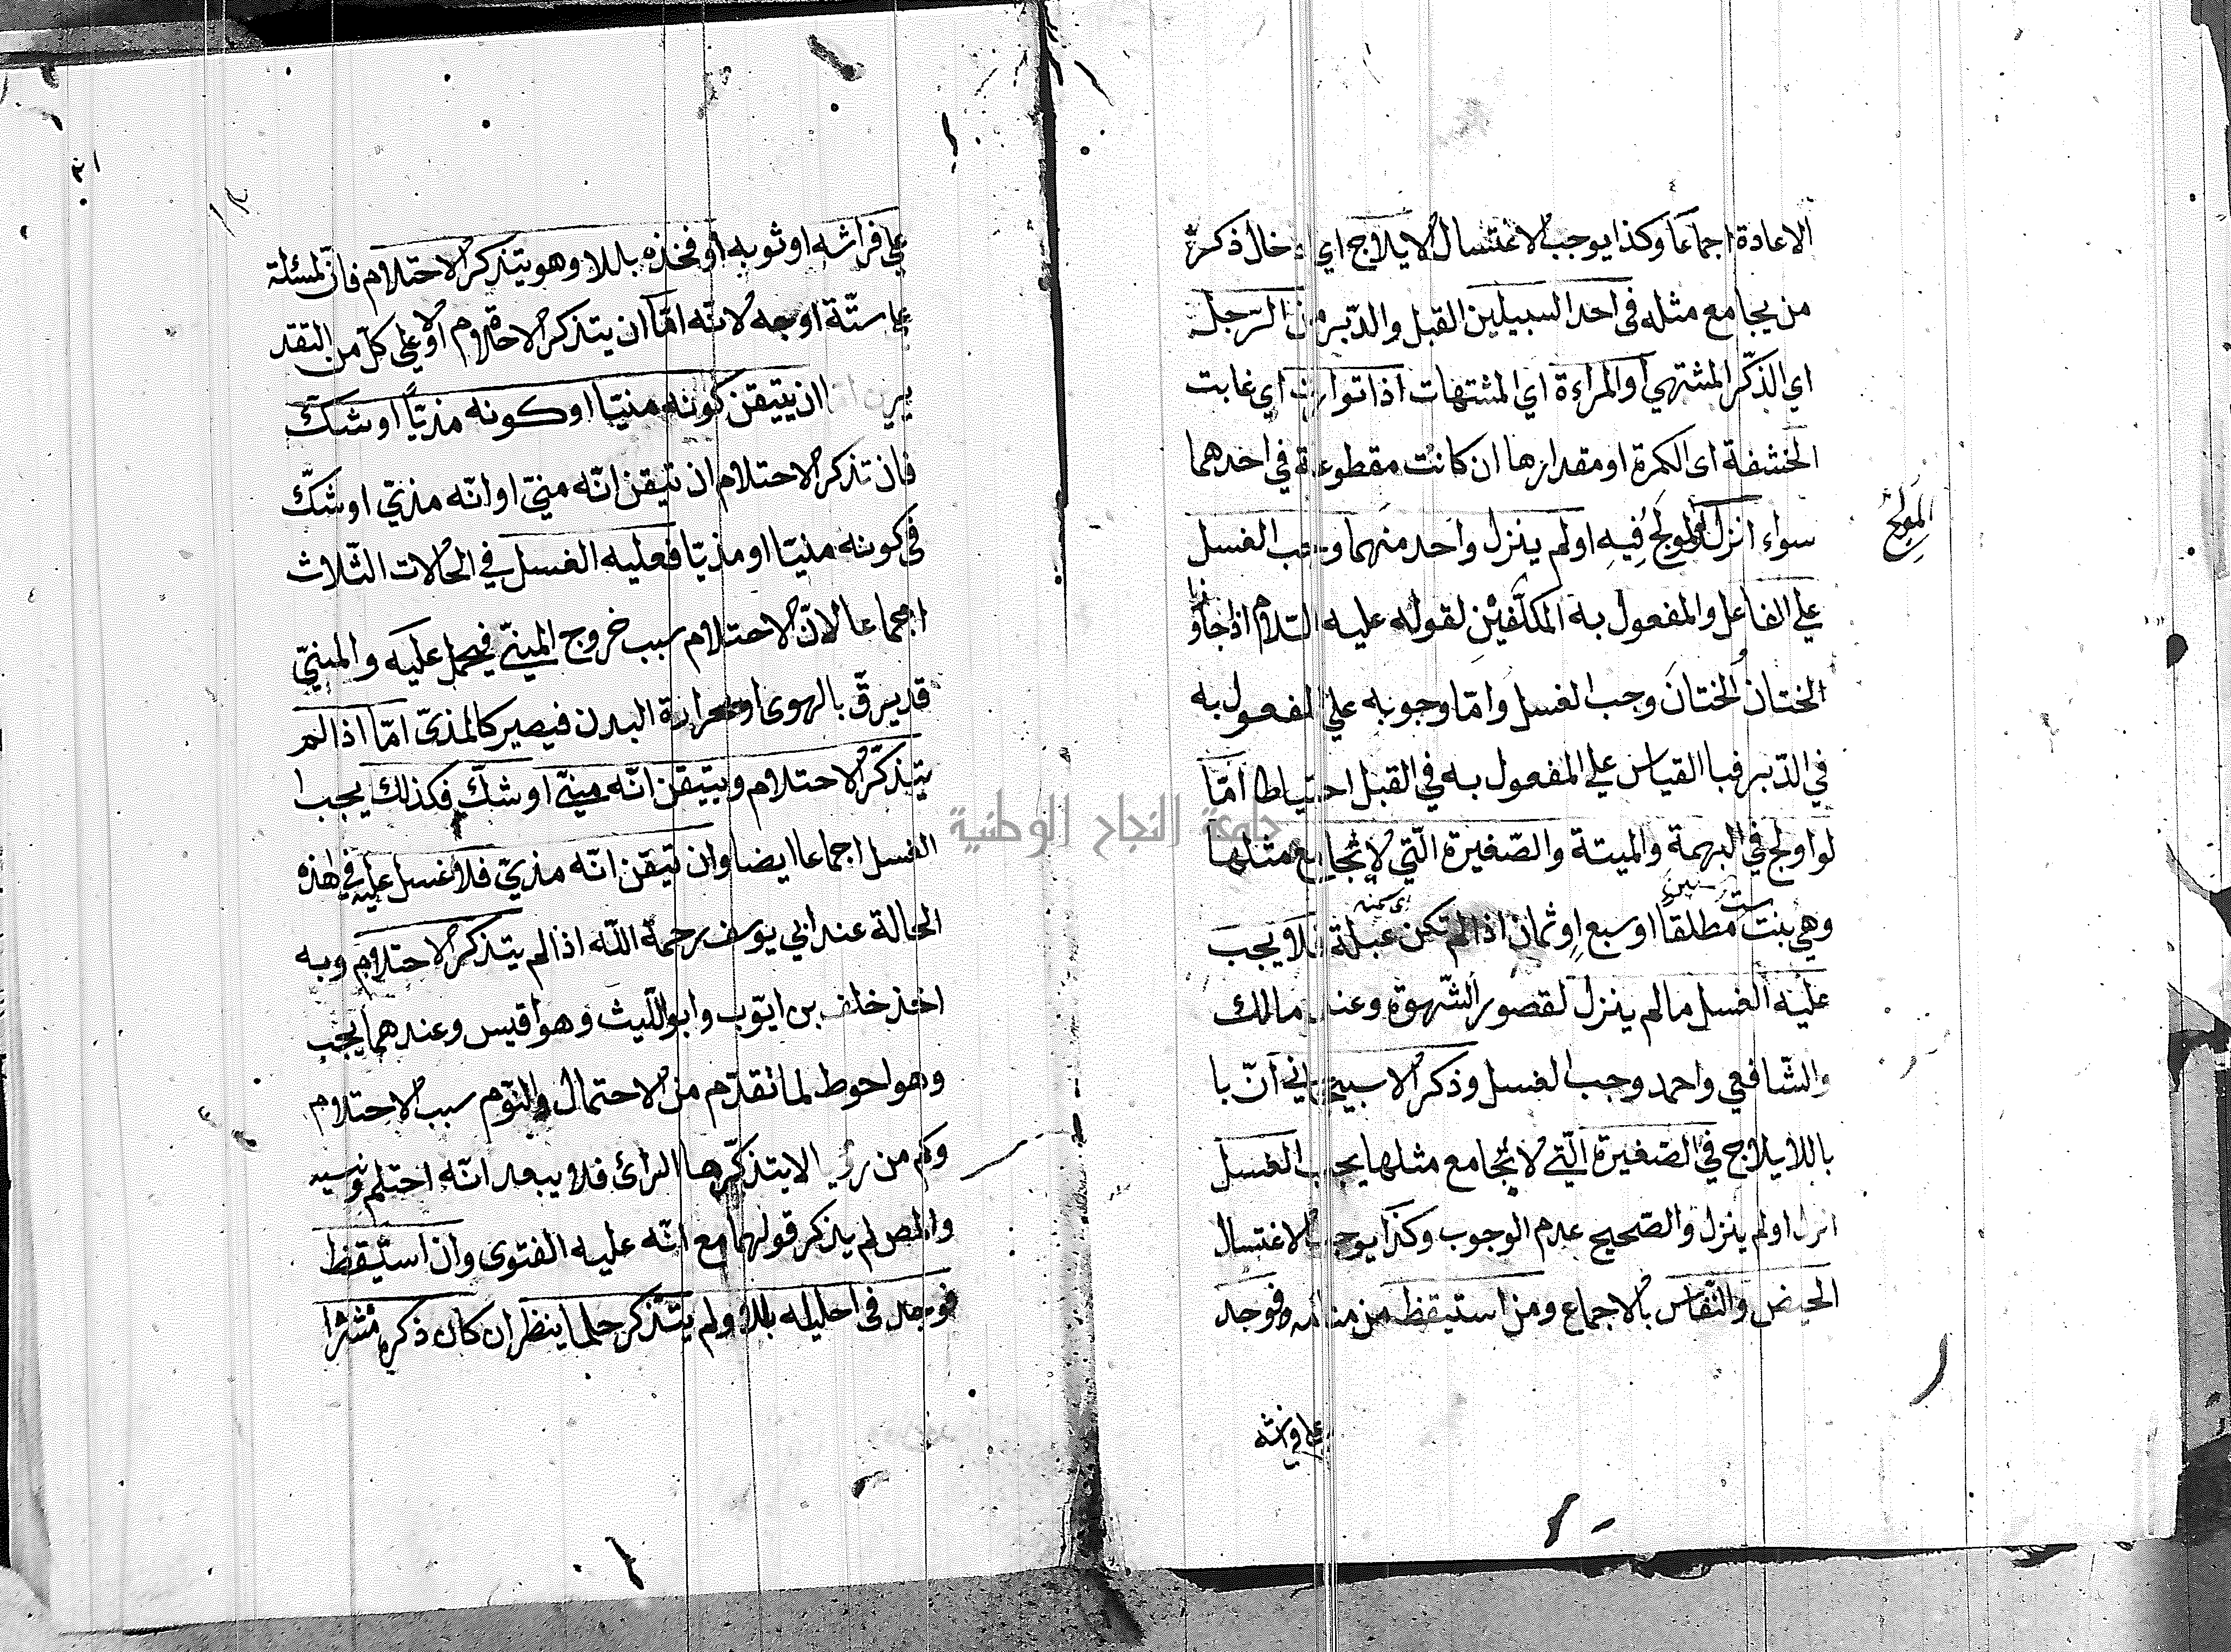 الاعادة اجماعا وكذا يوجب الاغتسال الايلاج اي ادخال ذكر
من يجامع مثله في احد السبيلين القبل والدّبر من الرّجل
اي الذّكر المشتهي او المراءة اي المشتهات اذا توارت اي غابت
الحشفة اى الكمرة او مقدارها ان كانت مقطوعة في احدهما
المولج
سواء انزل المولج فيه او لم ينزل واحد منهما وجب الغسل
علي الفاعل والمفعول به المكلّفين لقوله عليه السّلام اذا جاوز
الختان الختان وجب الغسل وامّا وجوبه علي المفعول به
في الدّبر فبا القياس علي المفعول به في القبل احتياطا امّا
لو اولج في البهمة والميتة والصّغيرة الّتي لا تجامع مثلها
وهي بنت ست سنين مطلقا او سبع او ثمان اذا لم تكن عبلة فلا يجب
عليه الغسل مالم ينزل لقصور الشّهوة وعند مالك
والشّافعي واحمد وجب الغسل وذكر الاسبيجاني انّ با
باللايلاج في الصّغيرة الّتي لا تجامع مثلها يجب الغسل
انزل او لم ينزل والصّحيح عدم الوجوب وكذا يوجب الاغتسال
الحيض والنّفاس بالاجماع ومن استيقظ من منامه فوجد
علي فراشه
جامعة النجاح الوطنية
علي فراشه او ثوبه او فخذه بللا وهو يتذكر الاحتلام فانّ المسئلة
علي ستّة اوجه لانّه امّا ان يتذكر الاحتلام او لا وعلي كلّ من التقد
يرين امّا ان يتيقن كونه منيّا او كونه مذيّا او شكّ
فان تذكر الاحتلام ان تيقن انّه منيّ او انّه مذيّ او شكّ
في كونه منيّا او مذيّا فعليه الغسل في الحالات الثّلاث
اجماعا لانّ الاحتلام سبب خروج المنيّ فيحمل عليه والمنيّ
قد يرقّ بالهوى او بحرارة البدن فيصير كالمذيّ امّا اذا لم
يتذكّر الاحتلام ويتيقن انّه منيّ او شكّ فكذلك يجب ا
الغسل اجماعا ايضا وان تيقن انّه مذيّ فلا غسل عليه في هذه
الحالة عند ابي يوسف رحمة اللّه اذا لم يتذكر الاحتلام وبه
اخذ خلف بن ايّوب وابو اللّيث وهو اقيس وعندهما يجب
وهو احوط لما تقدّم من الاحتمال والنّوم سبب الاحتلام
وكم من رؤيا لا يتذكّرها الرائ فلا يبعد انّه احتلم ونسيه
والمص لم يذكر قولهما مع انّه عليه الفتوى وان استيقظ
فوجد في احليله بللا ولم يتذكر حلما ينظر ان كان ذكره منتشرا